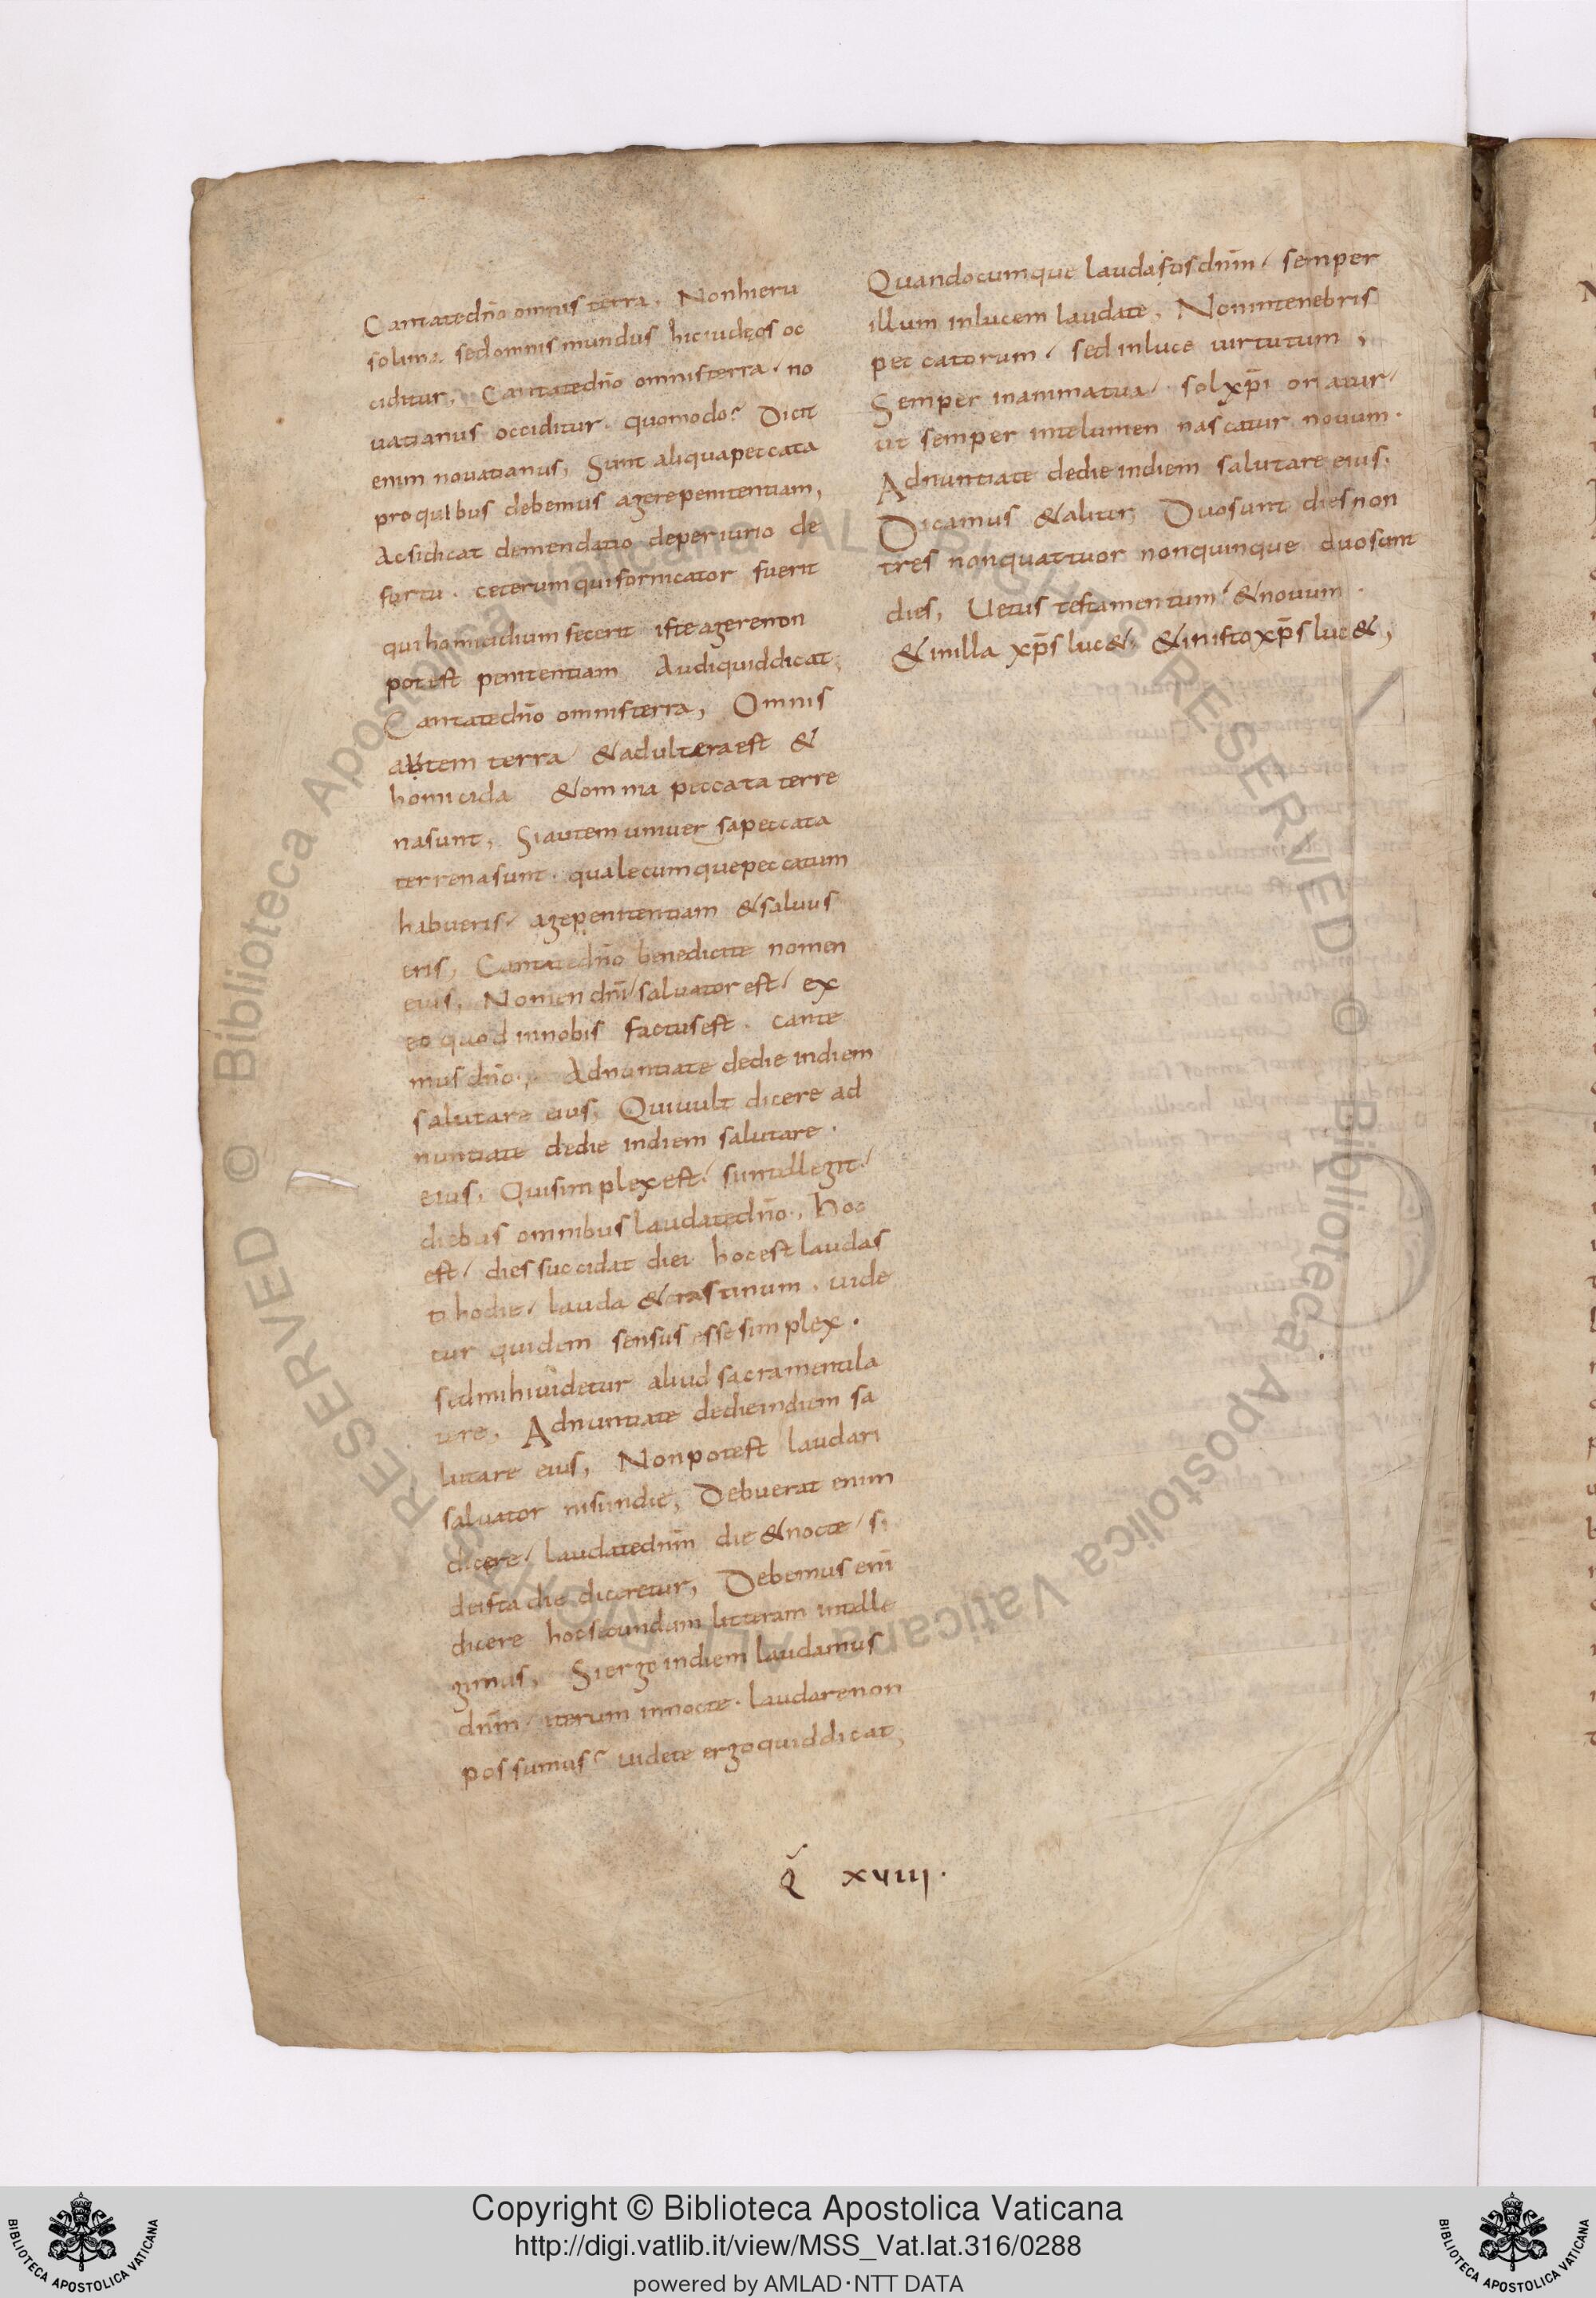 Cantatedn̄o omnis terra, Nonhieru
solima sedomnis mundus hiciudęos oc
ciditur, Cantatedn̄o omnisterra no
vatianus occiditur quomodo? Dicit
enim novatianus, Sunt aliquapeccata
proquibus debemus agerepenitentiam,
Acsidicat demendatio deperiurio de
furtu. ceterumquifornicator fuerit
quihomicidium fecerit isteagerenon
potest penitentiam Audiquiddicat,
Cantatedn̄o omnisterra, Omnis
autem terra &adulteraest &
homicida &omnia peccata terre
nasunt, Siautem univer sapeccata
terrenasunt. qualecumquepeccatum
habueris agepenitentiam &saluus
eris, Cantatedn̄o benedicite nomen
eius, Nomendn̄i saluatorest ex
eo quod innobis factusest. cante
musdn̄o, Adnuntiate dedie indiem
salutare eius, Quiuult dicere ad
nuntiate dedie indiem salutare.
eius. Quisimplexest sicintellegit
diebus omnibus laudatedn̄o, hoc
est dies succidat diei hocest laudas
ti hodie lauda &crastinum, uide
tur quidem sensus essesimplex.
sedmihiuidetur aliud sacramentila
tere, Adnuntiate dedieindiem sa
lutare eius, Nonpotest laudari
saluator nisiindie, Debuerat enim
dicere laudatedn̄m die &nocte si
deista die diceretur, Debemus eni̅
dicere hocsecundam litteram intelle
gimus, Siergo indiem laudamus
dn̄m iterum innocte. laudarenon
possumus? uidete ergoquiddicat,
Quandocumque laudastisdn̄m semper
illum inlucem laudate, Nonintenebris
peccatorum sedinluce uirtutum,
Semper inanimatua solxp̄i oriatur
ut semper intelumen nascatur novum.
Adnuntiate dedie indiem salutare eius.
Dicamus &aliter, Duosunt diesnon
tres nonquattuor nonquinque duosunt
dies, Uetus testamentum &novum.
&inilla xp̄s luc& &inistoxp̄s luc&,
Q̃ xviii.
Copyright © Biblioteca Apostolica Vaticana
http://digi.vatlib.it/view/MSS_Vat.lat.316/0288
powered by AMLAD·NTT DATA
BIBLIOTECA APOSTOLICA VATICANA
BIBLIOTECA APOSTOLICA VATICANA